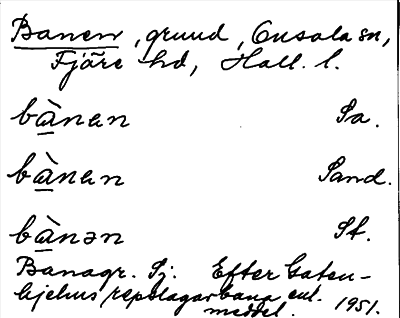 Banen, grund, Onsala sn,
Fjäre hd, Hall. l.
bànen Sa.
bànen Sand.
bànən St.
Banagr. Sj. Efter Gaten-
hjelms repslagarbana enl.
meddel. 1951.